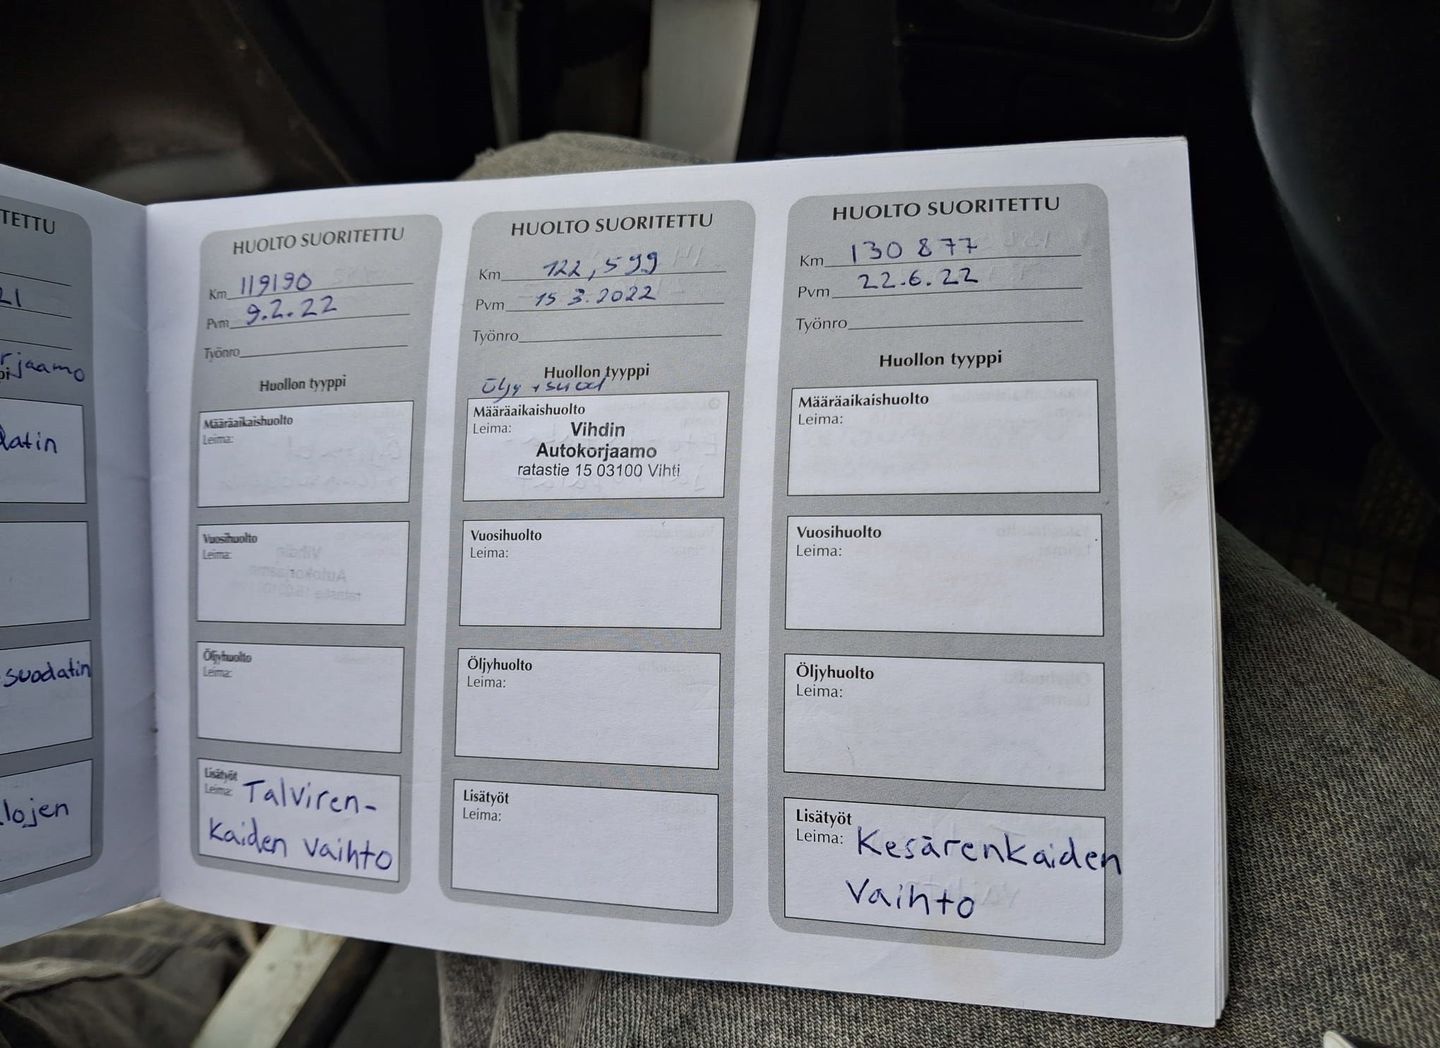 TETTU
21
rjaamo
pi
datin
suodatin
lojen
HUOLTO SUORITETTU
Km 119190
Pvm 9.2.22
Työnro
Huollon tyyppi
Määräaikaishuolto
Leima:
Vuosihuolto
Leima:
Öljyhuolto
Leima:
Lisätyöt
Leima: Talviren-
kaiden vaihto
HUOLTO SUORITETTU
Km 122,599
Pvm 15 3.2022
Työnro
Huollon tyyppi
Öljy + suod
Määräaikaishuolto
Leima: Vihdin
Autokorjaamo
ratastie 15 03100 Vihti
Vuosihuolto
Leima:
Öljyhuolto
Leima:
Lisätyöt
Leima:
HUOLTO SUORITETTU
Km 130 877
Pvm 22.6.22
Työnro
Huollon tyyppi
Määräaikaishuolto
Leima:
Vuosihuolto
Leima:
Öljyhuolto
Leima:
Lisätyöt
Leima: Kesärenkaiden
vaihto